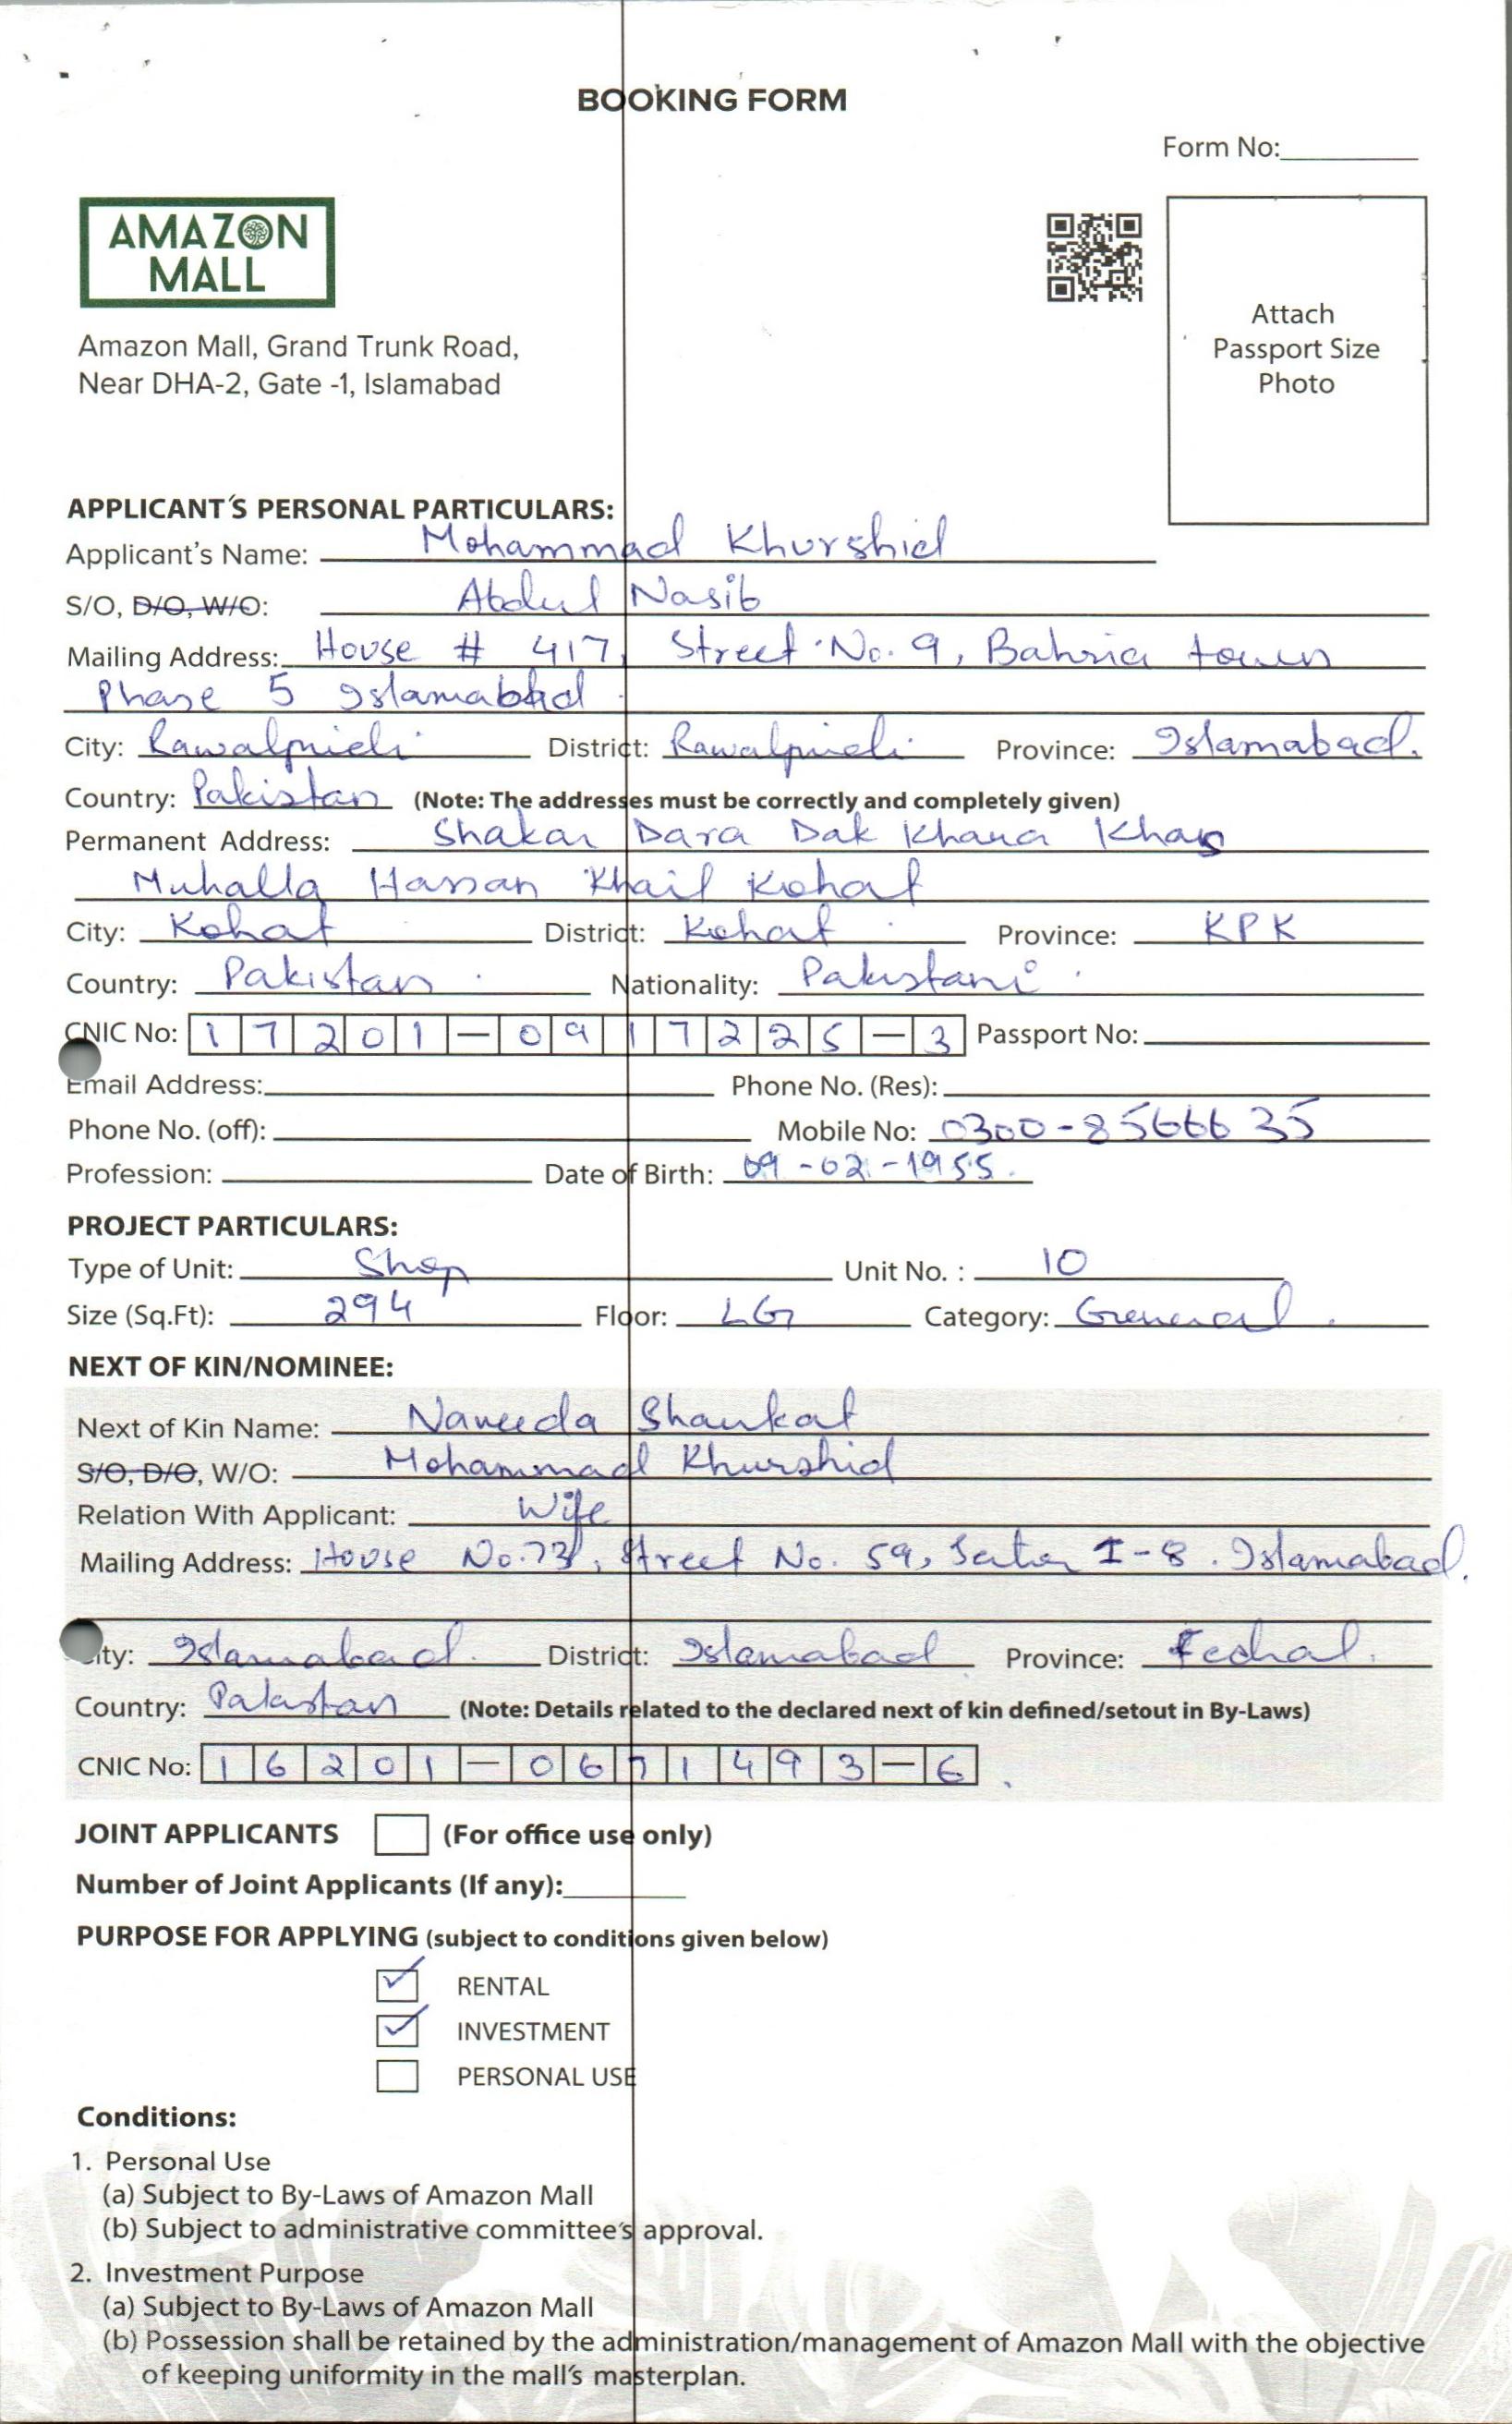 BOOKING FORM
Form No:
AMAZON
MALL
Amazon Mall, Grand Trunk Road,
Near DHA-2, Gate -1, Islamabad
Attach
Passport Size
Photo
APPLICANT'S PERSONAL PARTICULARS:
Applicant's Name: Mohammad Khurshid
S/O, D/O, W/O: Abdul Nasib
Mailing Address: House # 417, Street No. 9, Bahria town
Phase 5 Islamabad
City: Rawalpindi District: Rawalpindi Province: Islamabad.
Country: Pakistan (Note: The addresses must be correctly and completely given)
Permanent Address: Shakar Dara Dak Khana Khas
Muhalla Hassan Khail Kohat
City: Kohat District: Kohat Province: KPK
Country: Pakistan Nationality: Pakistani
CNIC No: 17201-0917225-3 Passport No:
Email Address: Phone No. (Res):
Phone No. (off): Mobile No: 0300-8566635
Profession: Date of Birth: 09-02-1955.
PROJECT PARTICULARS:
Type of Unit: Shop Unit No. : 10
Size (Sq.Ft): 294 Floor: LG Category: General
NEXT OF KIN/NOMINEE:
Next of Kin Name: Naveeda Shaukat
S/O, D/O, W/O: Mohammad Khurshid
Relation With Applicant: Wife
Mailing Address: House No. 73, Street No. 59, Sector I-8. Islamabad.
City: Islamabad District: Islamabad Province:
Country: Pakistan (Note: Details related to the declared next of kin defined/setout in By-Laws)
CNIC No: 16201-0671493-6
JOINT APPLICANTS (For office use only)
Number of Joint Applicants (If any):
PURPOSE FOR APPLYING (subject to conditions given below)
RENTAL
INVESTMENT
PERSONAL USE
Conditions:
1. Personal Use
(a) Subject to By-Laws of Amazon Mall
(b) Subject to administrative committee's approval.
2. Investment Purpose
(a) Subject to By-Laws of Amazon Mall
(b) Possession shall be retained by the administration/management of Amazon Mall with the objective
of keeping uniformity in the mall's masterplan.